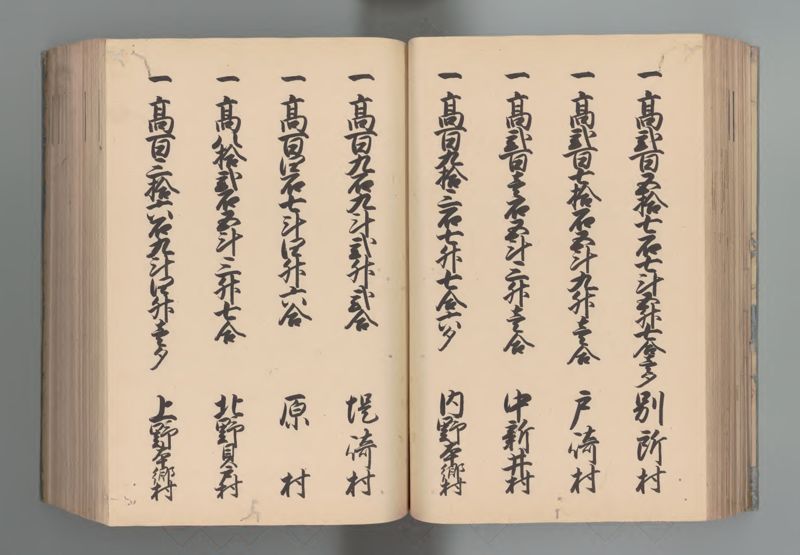 一 高弐百五拾七石七斗五升七合壱夕 別所村
一 高弐百七拾石五斗九升壱合 戸崎村
一 高弐百壱石五斗三升壱合 中新井村
一 高百九拾三石七斗七合六夕 内野本郷村
一 高百九石九斗弐升弐合 堤崎村
一 高百四石七斗四升六合 原村
一 高八拾弐石五斗三升七合 北野貝戸村
一 高百三拾六石九斗四升壱夕 上野本郷村